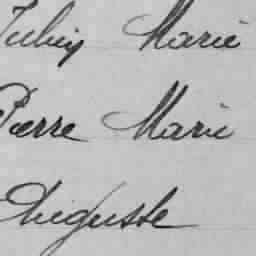 Julien Marie
Pierre Marie
Auguste